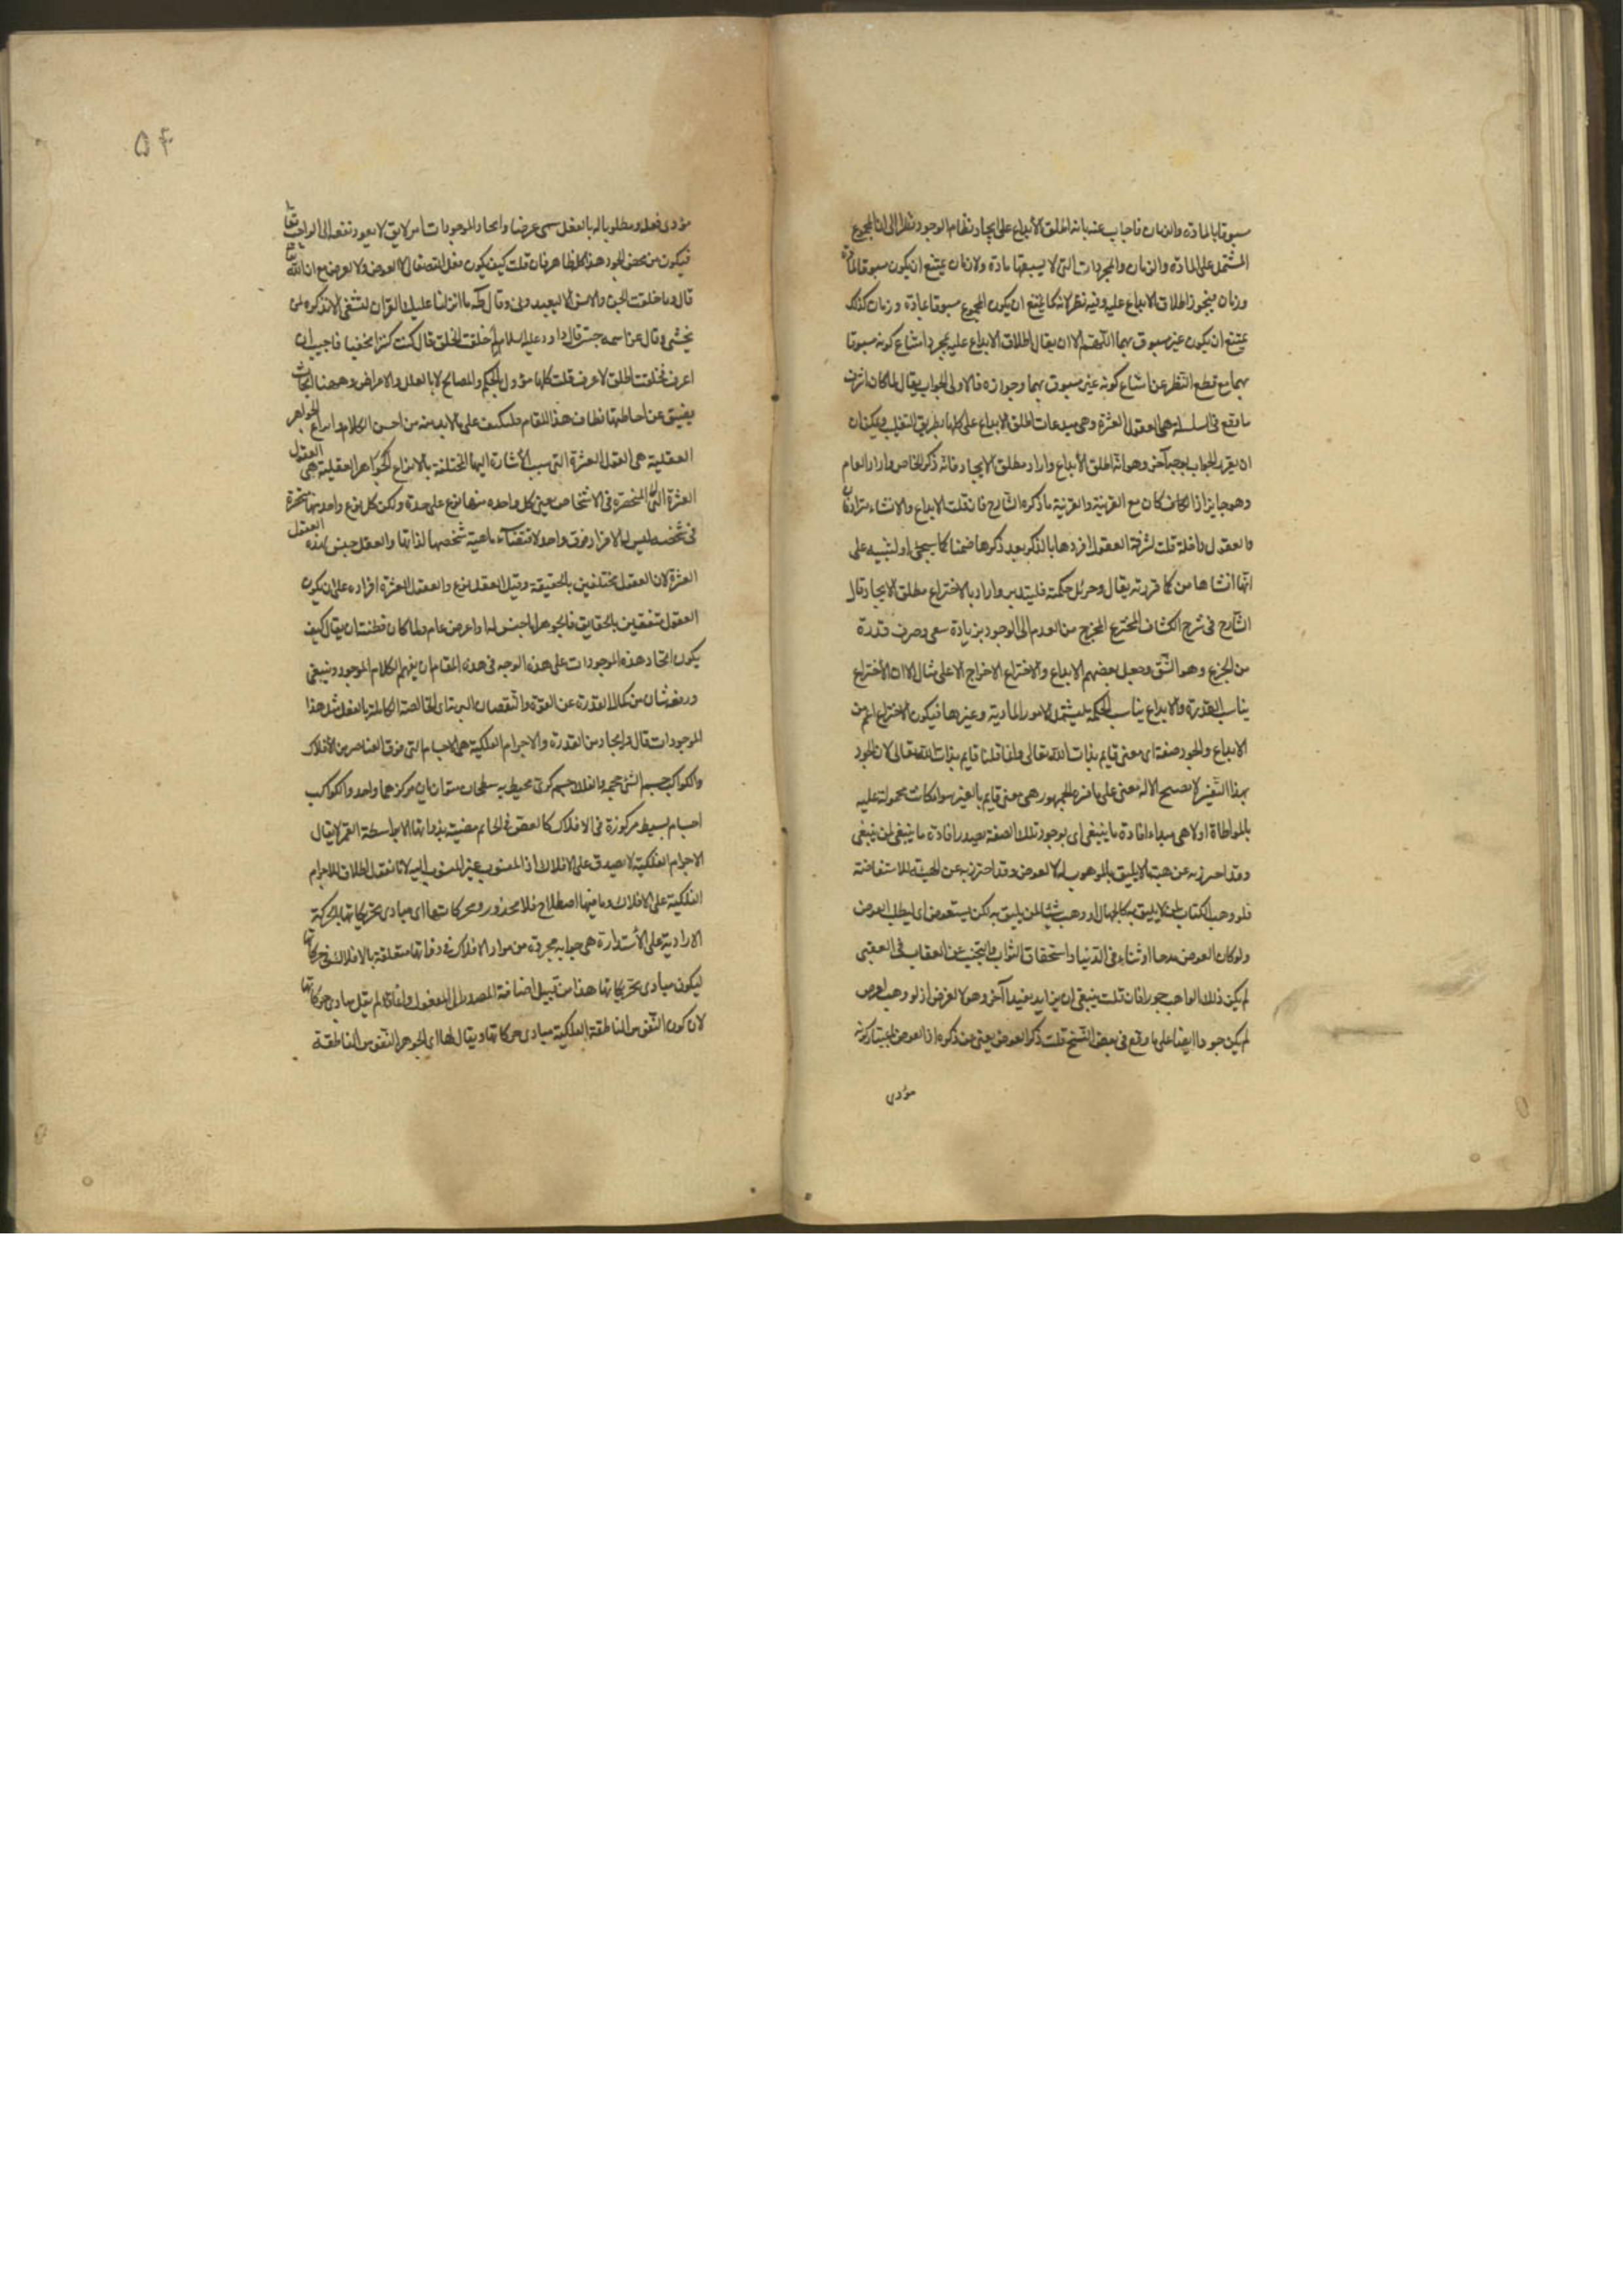 مسبوقا بالمادة والزمان فاجاب عنه بانه اطلق الابداع على ايجاد نظام الوجود نظرا الى ان المجموع
المشتمل على المادة والزمان والمجردات التى لا يسبقها مادة ولا زمان يمتنع ان يكون مسبوقا بمادة
وزمان فيجوز اطلاق الابداع عليه وفيه نظر لانه كما يمتنع ان يكون المجموع مسبوقا بمادة وزمان كذلك
يمتنع ان يكون غير مسبوق بهما اللهم الا ان يقال اطلاق الابداع عليه بمجرد امتناع كونه مسبوقا
بهما مع قطع النظر عن امتناع كونه غير مسبوق بهما وجوازه فالاولى الجواب يقال لما كان اشرف
ما وقع فى السلسلة هى العقول العشرة وهى مبدعات اطلق الابداع على كلها بطريق التغليب ويمكن ان
ان يقرر الجواب بوجه آخر وهو انه اطلق الابداع واراد مطلق الايجاد فانه ذكر الخاص واراد العام
وهو جايز اذا كان مع القرينة والقرينة ما ذكره الشارح فان قلت الابداع والانشاء مترادفان
والعقول داخلة قلت لشرافة العقول افردها بالذكر بعد ذكرها ضمنا كما سيجئ او لتنبيه على
انها انشاها من قدرته يقال وحريل حكمته فليتدبر واراد بالاختراع مطلق الايجاد قال
الشارح فى شرح الكشاف المخترع المخرج من العدم الى الوجود بزيادة سعى وصرف قدرة
من الجزع وهو الشق وجعل بعضهم الابداع والاختراع الاخراج لا على مثال الا ان الاختراع
يناسب القدرة والابداع يناسب الحكمة يشتمل الامور المادية وغيرها فيكون الاختراع اعم من
الابداع والجود صفة اى معنى قايم بذات الله تعالى وانما قلنا قايم بذات الله تعالى لان الجود
بهذا التفسير لا يصح الا له معنى على ما فسره الجمهور هى معنى قايم بالغير سواء كانت محمولة عليه
بالمواطاة او لا هى مبداء افادة ما ينبغى اى بوجود تلك الصفة يصدر افادة ما ينبغى لمن ينبغى
وقد احترز به عن هبة ما لا يليق بالموهوب له لا لعوض وقد احترز به عن الهبة للاستعاضة
فلو وهب الكتاب لمن لا يليق به كالجهال او وهب شيئا لمن يليق به لكن يستعوض اى يطلب العوض
ولو كان العوض مدحا او ثناء فى الدنيا واستحقاق الثواب والتجنب عن العقاب فى العقبى
لم يكن ذلك الواهب جوادا فان قلت ينبغى ان يزايد بقيدا آخر وهو لا لغرض اذ لو وهب لغرض
لم يكن جودا ايضا على ما وقع فى بعض النسخ قلت ذكر العوض يغنى عن ذكره اذ العوض
مؤدى
۵۴
مؤدى فعله ومطلوبا له بالفعل سمى عرضا وايجاد الموجودات امر لايق لا يعود نفعه الى الواجب تعا
فيكون من محض الجود هذا كله ظاهر فان قلت كيف يكون فعل الله تعالى لا لعوض ولا لعرض مع ان الله تعا
قال وما خلقت الجن والانس الا ليعبدون وقال طه ما انزلنا عليك القران لتشقى الا تذكرة لمن
يخشى وقال عز اسمه حين قال داود عليه السلام لم خلقت الخلق قال كنت كنزا مخفيا فاحببت ان
اعرف فخلقت الخلق لاعرف قلت كلها مؤول بالحكم والمصالح لا بالعلل والاعراض وههنا ابحاث
يضيق عن احاطتها نطاق هذا المقام فليكتف على ما لا بد منه من احسن الكلام وابداع الجواهر
العقلية هى العقول العشرة التى سبب الاشارة اليها المختلفة بالانواع الجواهر العقلية هى العقول
العشرة المنحصرة فى الاشخاص يعنى كل واحده منها نوع على حدة ولكن كل نوع واحد منها منحصرة
فى شخصه ليس له الافراد فوق واحد لاقتضاء ماهيته شخصها لذاتها والعقل جنس لهذه العقول
العشرة لان العقول مختلفين بالحقيقة وقيل العقل نوع والعقول العشرة افراده على ان يكون
العقول متفقين بالحقايق فالجوهر اما جنس لها او عرض عام ولما كان مظنة ان يقال كيف
يكون ايجاد هذه الموجودات على هذه الوجه فى هذه المقام ان يفهم الكلام الموجود وينبغى
ورفع شان من كمال القدرة عن القوة والنقصان البرئة اى الخالصة الكاملة بالفعل مثل هذا
الموجودات قال وايجاد من القدرة والاجرام الفلكية هى الاجسام التى فوق العناصر من الافلاك
والكواكب جسم الشئ حجمه والفلك جسم كرى محيط به سطحان متوازيان مركزهما واحد والكواكب
اجسام بسيطه مركوزة فى الافلاك كالفص فى الخاتم مضيئة بذواتها الا بواسطة القمر لا يقال
الاجرام الفلكية لا يصدق على الافلاك اذ المنسوب غير المنسوب اليه لانا نقول اطلاق الاجرام
الفلكية على الافلاك وما فيها اصطلاح فلا محذور ومحركاتها اى مبادى تحريكاتها بالحركة
الارادية على الاستدارة هى جواهر مجردة من مواد الافلاك فى ذواتها متعلقة بالافلاك فى حركاتها
ليكون مبادى تحريكاتها هذا من قبيل اضافة المصدر الى المفعول وانما لم يقل مبادى حركاتها
لان كون النفوس الناطقة الفلكية مبادى حركاتها ويقال لها اى الجوهر النفوس الناطقة